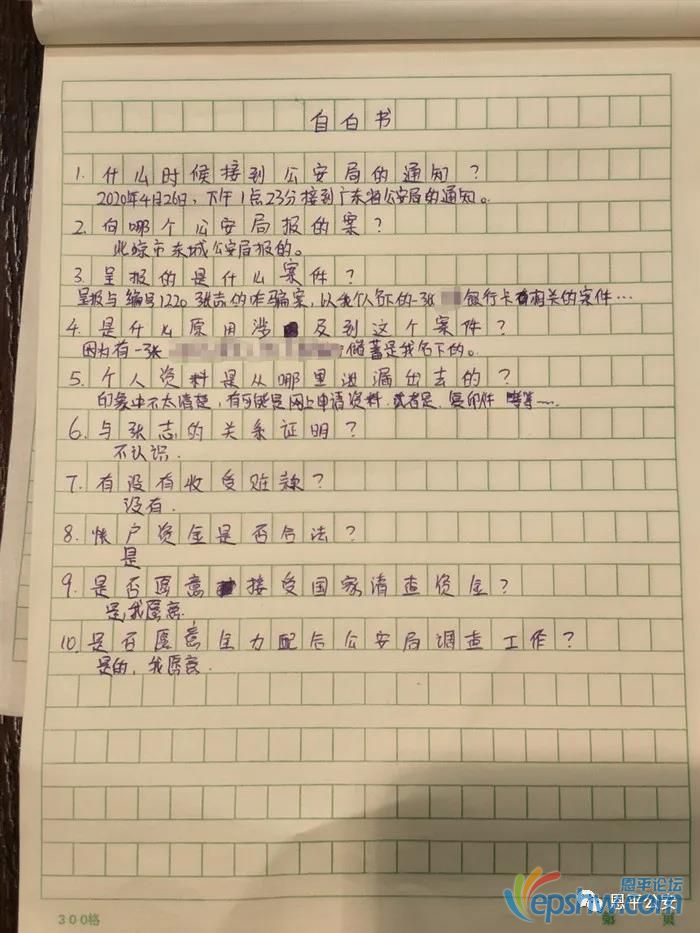 自白书
1. 什么时候接到公安局的通知？
2020年4月26日，下午1点23分接到广东省公安局的通知。
2. 向哪个公安局报的案？
北京市东城公安局报的。
3. 呈报的是什么案件？
呈报与编号1220张志的诈骗案，以我个人名下的一张 银行卡有相关的案件…
4. 是什么原因涉及到这个案件？
因为有一张 储蓄是我名下的。
5. 个人资料是从哪里泄漏出去的？
印象中不太清楚，有可能是网上申请资料.或者是.复印件 等等….
6. 与张志的关系证明？
不认识.
7. 有没有收受赃款？
没有.
8. 帐户资金是否合法？
是
9. 是否愿意接受国家清查资金？
是我愿意.
10. 是否愿意全力配合公安局调查工作？
是的，我愿意.
恩平论坛
epshw.com
恩平公安
300格
第 页